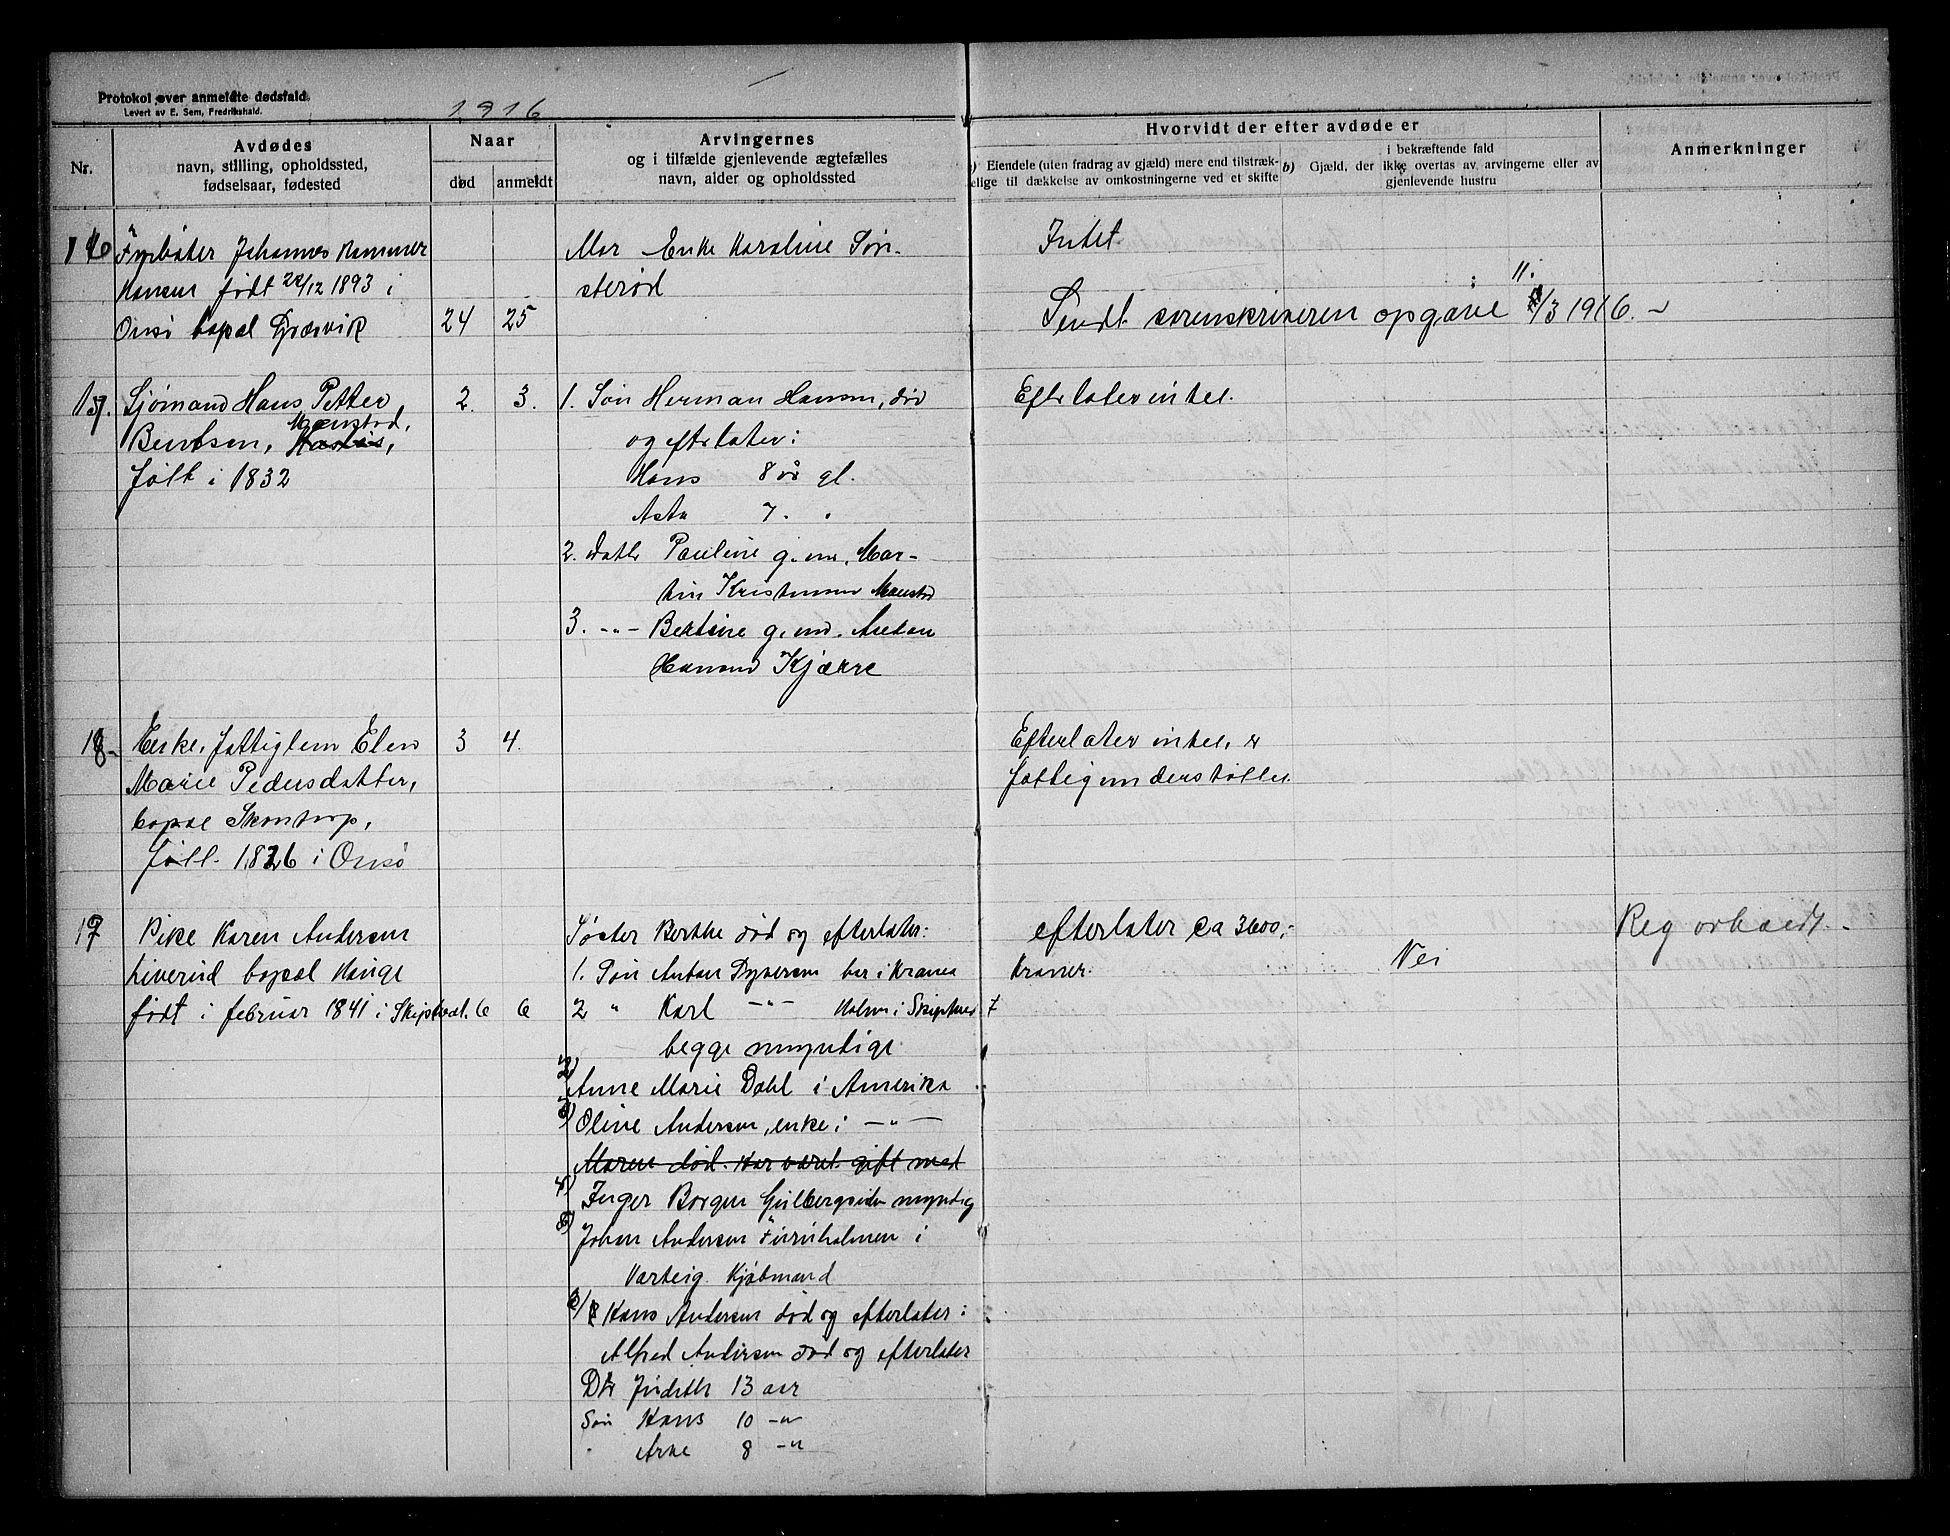 Protokol over anmeldte dødsfald.
Levert av E. Sem, Fredrikshald.
1916
Nr.
Avdødes
navn, stilling, opholdssted,
fødselsaar, fødested
Naar
død
anmeldt
Arvingernes
og i tilfælde gjenlevende ægtefælles
navn, alder og opholdssted
Hvorvidt der efter avdøde er
a) Eiendele (uten fradrag av gjæld) mere end tilstræk-
kelige til dækkelse av omkostningerne ved et skifte
i bekræftende fald
b) Gjæld, der ikke overtas av arvingerne eller av
gjenlevende hustru
Anmerkninger
16
Fyrbøter Johannes
Hansen født 22/12 1893 i
Onsø bopæl Græsvik
24 25
Mor Enke Karoline Søn-
sterød
Intet
Sendt sorenskriveren opgave 11/3 1916.
17.
Sjømand Hans Petter
Berntsen, Mænstad,
født i 1832
2. 3.
1. Søn Herman Hansen, død
og efterlater:
Hans 8 år gl.
Asta 7. "
2. Datter Pauline g. m. Mar-
tin Kristensen
3. -"- Bertine g. m. Anton
Hansen Kjærre
Efterlater intet.
18.
Enke, fattiglem Elen
Marie Pedersdatter,
bopæl Skontorp,
født 1826 i Onsø
3 4.
Efterlater intet, er
fattigunderstøttet
19
Pike Karen Andersen
Liverød bopæl Hauge
født i februar 1841 i Skiptvedt.
6 6
Søster Berthe død og efterlater:
1. Søn Anton Dyresen bor i Krania
2 " Karl -"- Holm i Skiptved
begge myndige
2) Anne Marie Dahl i Amerika
3) Oline Andersen, enke i -"-
Maren død. Har været gift med
4) Inger Borgen Gulbergsiden myndig
5) Johan Andersen Furuholmen i
Varteig. Kjøbmand
6/ Hans Andersen død og efterlater:
Alfred Andersen død og efterlater
Dtr Judith 13 aar
Søn Hans 10 -"-
" Arne 8 -"-
efterlater ca 3600,-
Kroner.
Nei
Reg